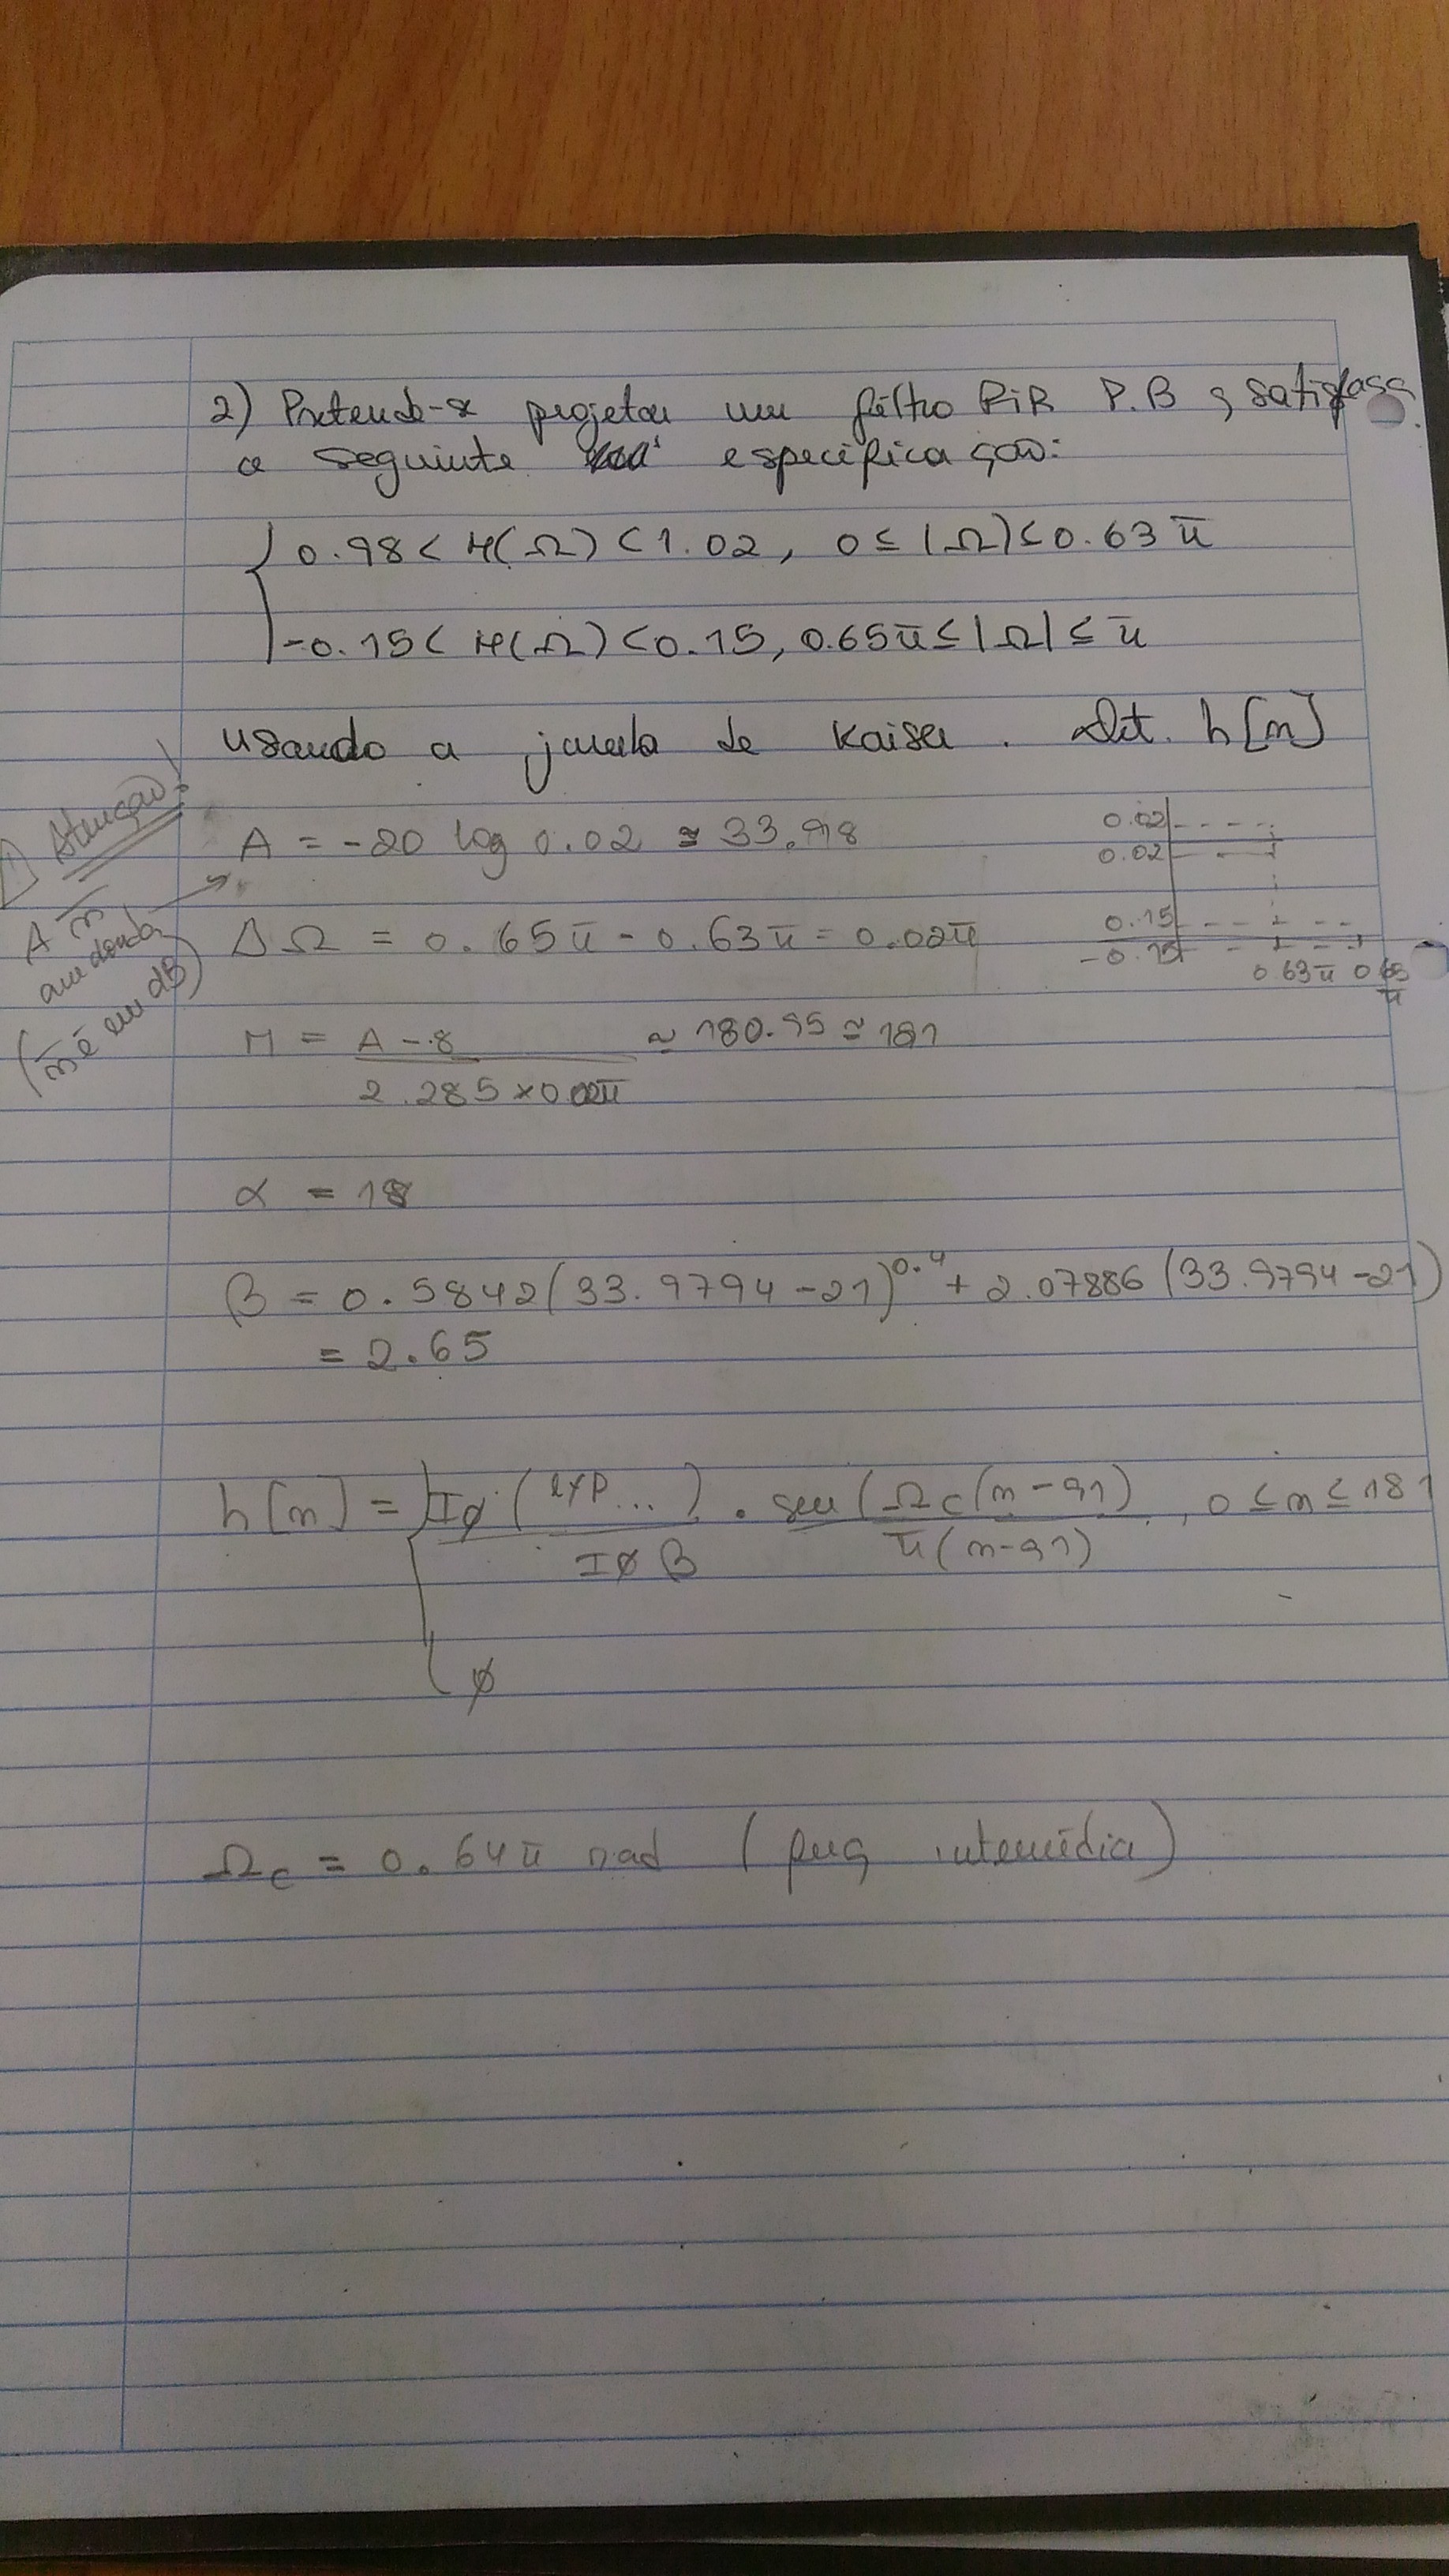 2) Pretende-se projetar um filtro FIR P.B q satisfaça
a seguinte especificação:
0.98 < H(Ω) < 1.02, 0 ≤ |Ω| ≤ 0.63π
-0.15 < H(Ω) < 0.15, 0.65π ≤ |Ω| ≤ π
usando a janela de Kaiser. Det. h[n]
! Atenção!
A ñ
arredonda
(ñ é em dB)
A = -20 log 0.02 ≅ 33.98
0.02
0.02
0.15
-0.15
0.63π 0.65π
ΔΩ = 0.65π - 0.63π = 0.02π
M = A - 8 / 2.285 × 0.02π ≃ 180.95 ≃ 181
α = 18
β = 0.5842(33.9794-21)^0.4 + 2.07886(33.9794-21)
= 2.65
h[n] = { IØ(exp...) / IØ β . sen(Ωc(n-91) / π(n-91) , 0 ≤ n ≤ 181
Ø
Ωc = 0.64π rad (freq intermédia)